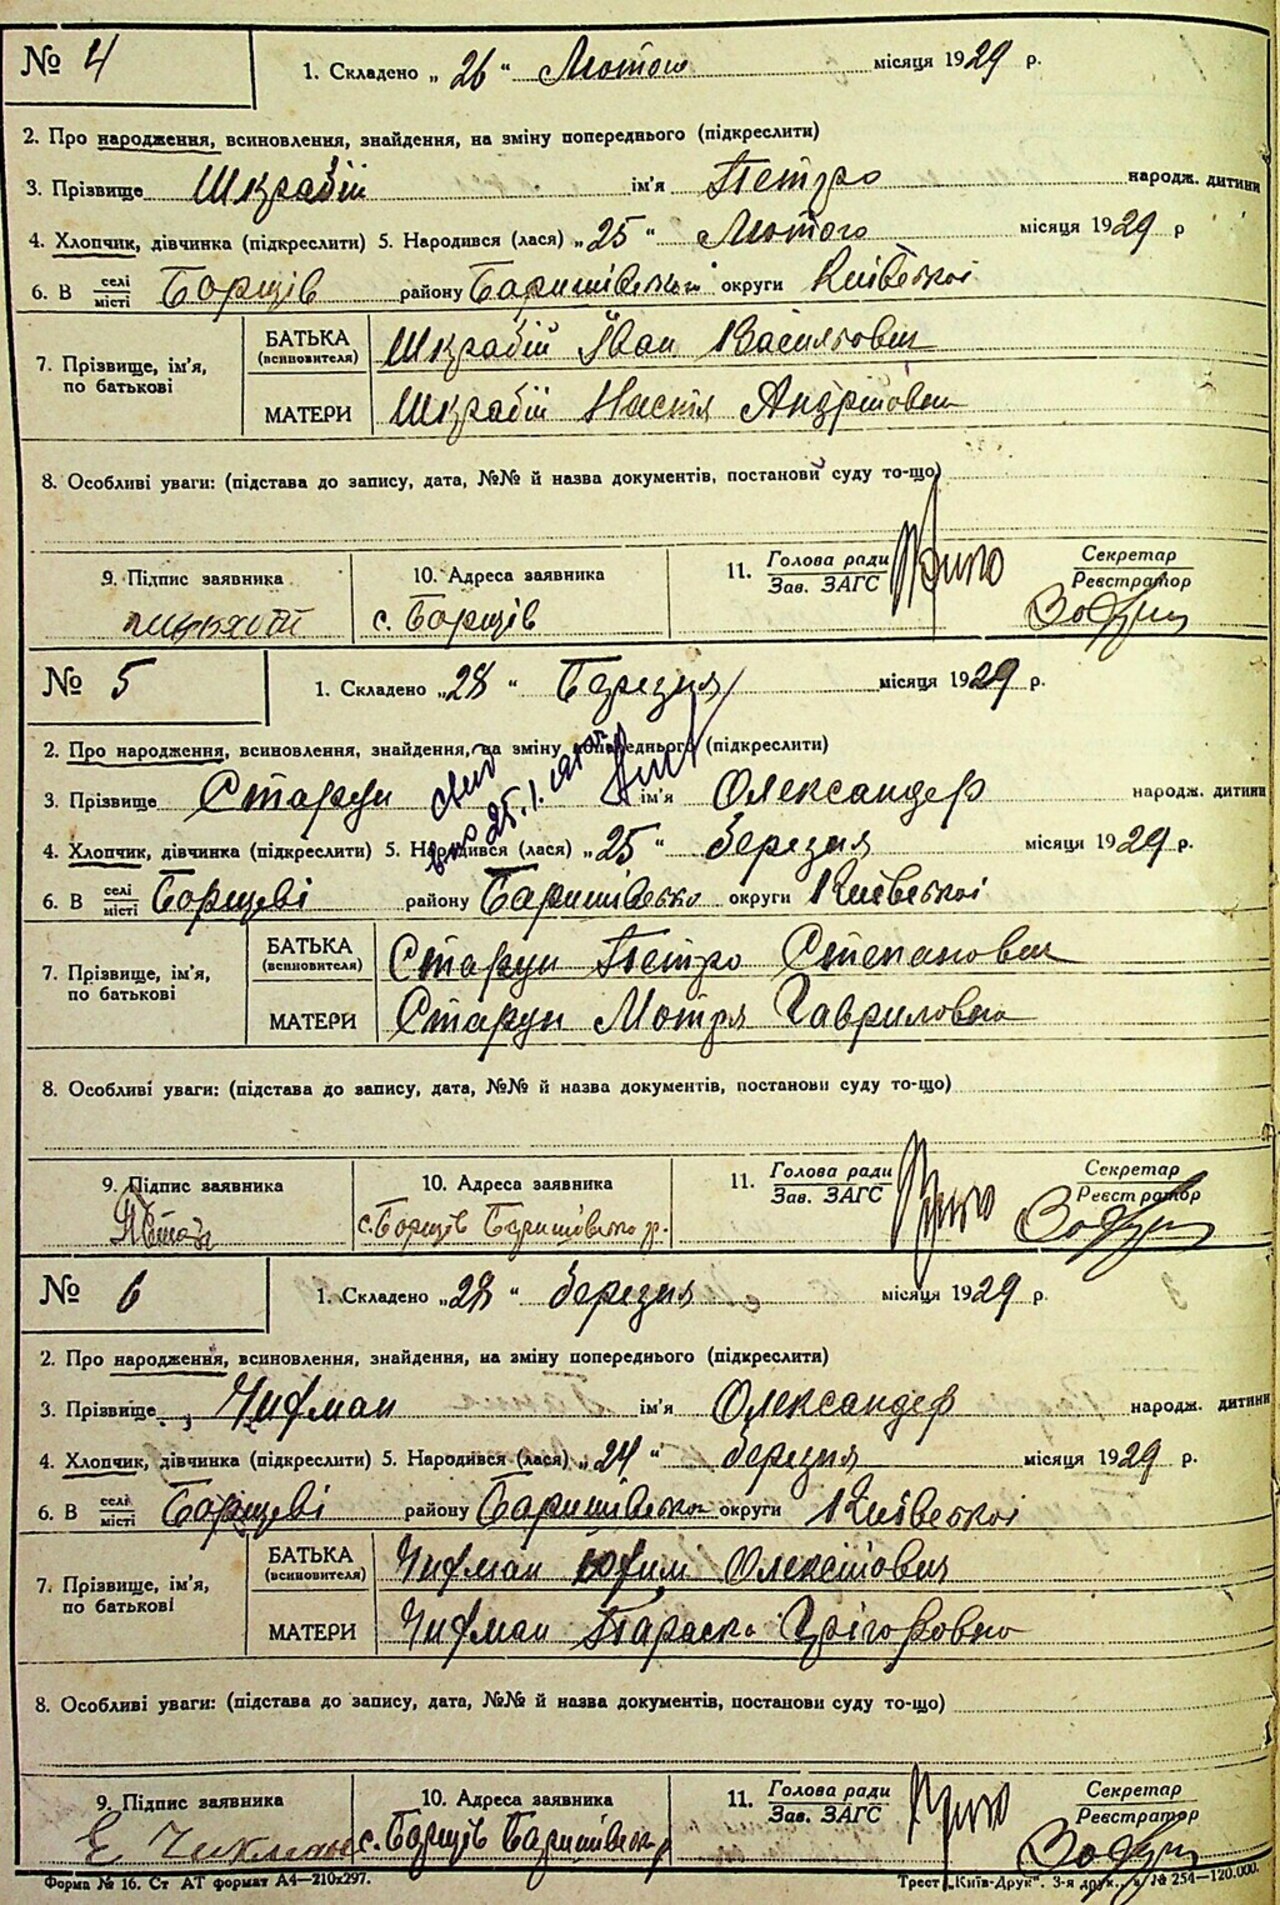 № 4
1. Складено „ 26 “ Лютого місяця 1929 р.
2. Про народження, всиновлення, знайдення, на зміну попереднього (підкреслити)
3. Прізвище Шкрабій ім'я Петро народж. дитини
4. Хлопчик, дівчинка (підкреслити) 5. Народився (лася) „ 25 “ Лютого місяця 1929 р
6. В селі/місті Борщів району Баришівської округи Київської
7. Прізвище, ім'я, по батькові
БАТЬКА (всиновителя) Шкрабій Іван Васильович
МАТЕРИ Шкрабій Настя Андріївна
8. Особливі уваги: (підстава до запису, дата, №№ й назва документів, постанови суду то-що)
9. Підпис заявника
10. Адреса заявника с. Борщів
11. Голова ради
Зав. ЗАГС
Секретар
Реєстратор
№ 5
1. Складено „ 28 “ Березня місяця 1929 р.
2. Про народження, всиновлення, знайдення, на зміну попереднього (підкреслити)
3. Прізвище Старун ім'я Олександер народж. дитини
4. Хлопчик, дівчинка (підкреслити) 5. Народився (лася) „ 25 “ березня місяця 1929 р.
6. В селі/місті Борщеві району Баришівсько округи Київської
7. Прізвище, ім'я, по батькові
БАТЬКА (всиновителя) Старун Петро Степанович
МАТЕРИ Старун Мотря Гаврилова
8. Особливі уваги: (підстава до запису, дата, №№ й назва документів, постанови суду то-що)
9. Підпис заявника
10. Адреса заявника с. Борщів Баришівсько р.
11. Голова ради
Зав. ЗАГС
Секретар
Реєстратор
№ 6
1. Складено „ 28 “ березня місяця 1929 р.
2. Про народження, всиновлення, знайдення, на зміну попереднього (підкреслити)
3. Прізвище Чикман ім'я Олександер народж. дитини
4. Хлопчик, дівчинка (підкреслити) 5. Народився (лася) „ 24 “ березня місяця 1929 р.
6. В селі/місті Борщеві району Баришівсько округи Київської
7. Прізвище, ім'я, по батькові
БАТЬКА (всиновителя) Чикман Юхим Олексійович
МАТЕРИ Чикман Параска Грігоровно
8. Особливі уваги: (підстава до запису, дата, №№ й назва документів, постанови суду то-що)
9. Підпис заявника Є Чикман
10. Адреса заявника с. Борщів Баришівськ р
11. Голова ради
Зав. ЗАГС
Секретар
Реєстратор
Форма № 16. Ст АТ формат А4—210х297.
Трест „Київ-Друк“. 3-я друк., № 254—120.000.